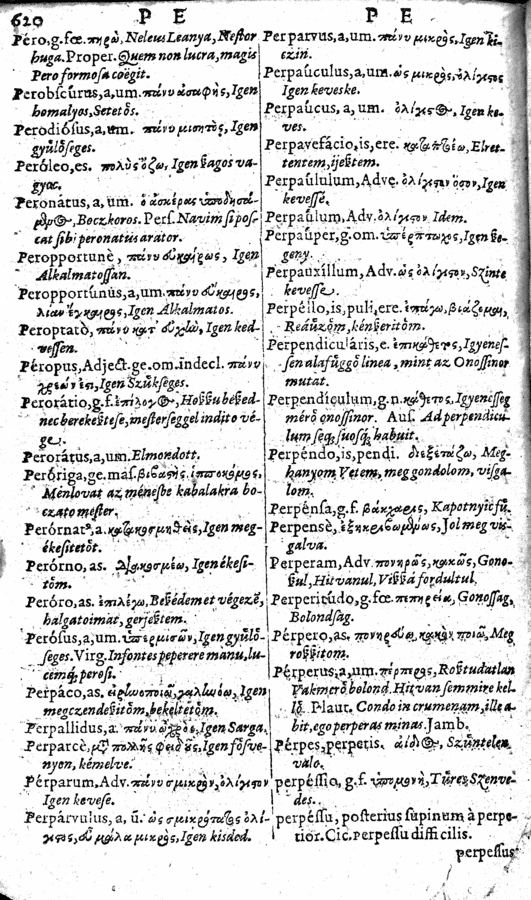 620 P E P E
Péro, g. fœ. πηρὼ, Neleus Leanya, Nestor
huga. Proper. Quem non lucra, magis
Pero formosa coëgit.
Perobscúrus, a, um. πάνυ ἀσαφὴς, Igen
homalyos, Setetŏs.
Perodiósus, a, um. πάνυ μισητὸς, Igen
gyŭlŏseges.
Peróleo, es. πολὺς ὄζω, Igen ßagos va-
gyac.
Peronátus, a, um.
Boczkoros. Pers. Navim si pos-
cat sibi peronatus arator.
Peropportunè, πάνυ Igen
Alkalmatossan.
Peropportúnus, a, um. πάνυ
λίαν Igen Alkalmatos.
Peroptatò, πάνυ κατ᾽ Igen ked-
vessen.
Péropus, Adject. ge. om. indecl. πάνυ
Igen Szŭkseges.
Perorátio, g. f. Hoßßu beßed-
nec berekeßtese, mesterseggel indito vé-
ge.
Perorátus, a, um. Elmondott.
Peróriga, ge. mas.
Ménlovat az ménesbe kabalakra bo-
czato mester.
Perórnatꝰ, a. Igen meg-
ékesitetŏt.
Perórno, as. Igen ékesi-
tŏm.
Peróro, as. ἐπιλέγω, Beßédemet végezē,
halgatoimat, gerjeßtem.
Perósus, a, um. Igen gyŭlŏ-
seges. Virg. Infontes peperere manu, lu-
cemq́; perosi.
Perpáco, as. Igen
megczendeßitŏm, bekeltetŏm.
Perpallidus, a. πάνυ Igen Sarga.
Perparcè, Igen fŏsve-
nyen, kémelve.
Pérparum, Adv. πάνυ σμικρὸν, ὀλίγιστον
Igen kevese.
Perpárvulus, a, ū. ὡς σμικρότατος ὀλί-
γιστος, μάλα μικρὸς, Igen kisded.
Perparvus, a, um. πάνυ μικρὸς, Igen ki-
czin.
Perpaúculus, a, um. ὡς μικρὸς, ὀλίγιστος
Igen keveske.
Perpaúcus, a, um. Igen ke-
ves.
Perpavefácio, is, ere. Elret-
tentem, ijeßtem.
Perpaúlulum, Adve. ὀλίγιστον ὅσον, Igen
kevessé.
Perpaúlum, Adv. ὀλίγιστον Idem.
Perpaúper, g. om. ὑπέρπτωχος, Igen ße-
geny.
Perpauxíllum, Adv. ὡς ὀλίγιστον, Szinte
kevesse.
Perpéllo, is, puli, ere. ἐπάγω, βιάζομαι,
Reáŭzŏm, kénßeritŏm.
Perpendiculáris, e. ἐπικάθετος, Igyenes-
sen alafŭggŏ linea, mint az Onossinor
mutat.
Perpendículum, g. n. κάθετος, Igyenesseg
mérŏ onossinor. Aus. Ad perpendicu-
lum seq́; suosq́; habuit.
Perpéndo, is, pendi. διεξετάζω, Meg-
hanyom Vetem, meg gondolom, visga-
lom.
Perpénsa, g. f. βάκχαρις, Kapotnyicŭ.
Perpensè, Jol meg vis-
galva.
Perperam, Adv. πονηρῶς, κακῶς, Gono-
ßul, Hitvanul, Vißßá fordultul.
Perperitúdo, g. fœ. πεπηρεία, Gonossag,
Bolondsag.
Pérpero, as. Meg
roßßitom.
Pérperus, a, um. πέρπερος, Roßtudatlan
Vakmerŏ bolond. Hitvan semmire kel-
lŏ. Plaut. Condo in crumenam, ille a-
bit, ego perperas minas. Jamb.
Pérpes, perpetis. Szŭntelen
valo.
perpéssio, g. f. ὑπομονὴ, Tŭres, Szenve-
des.
perpéssu, posterius supinum à perpe-
tior. Cic. Perpessu difficilis.
perpessus